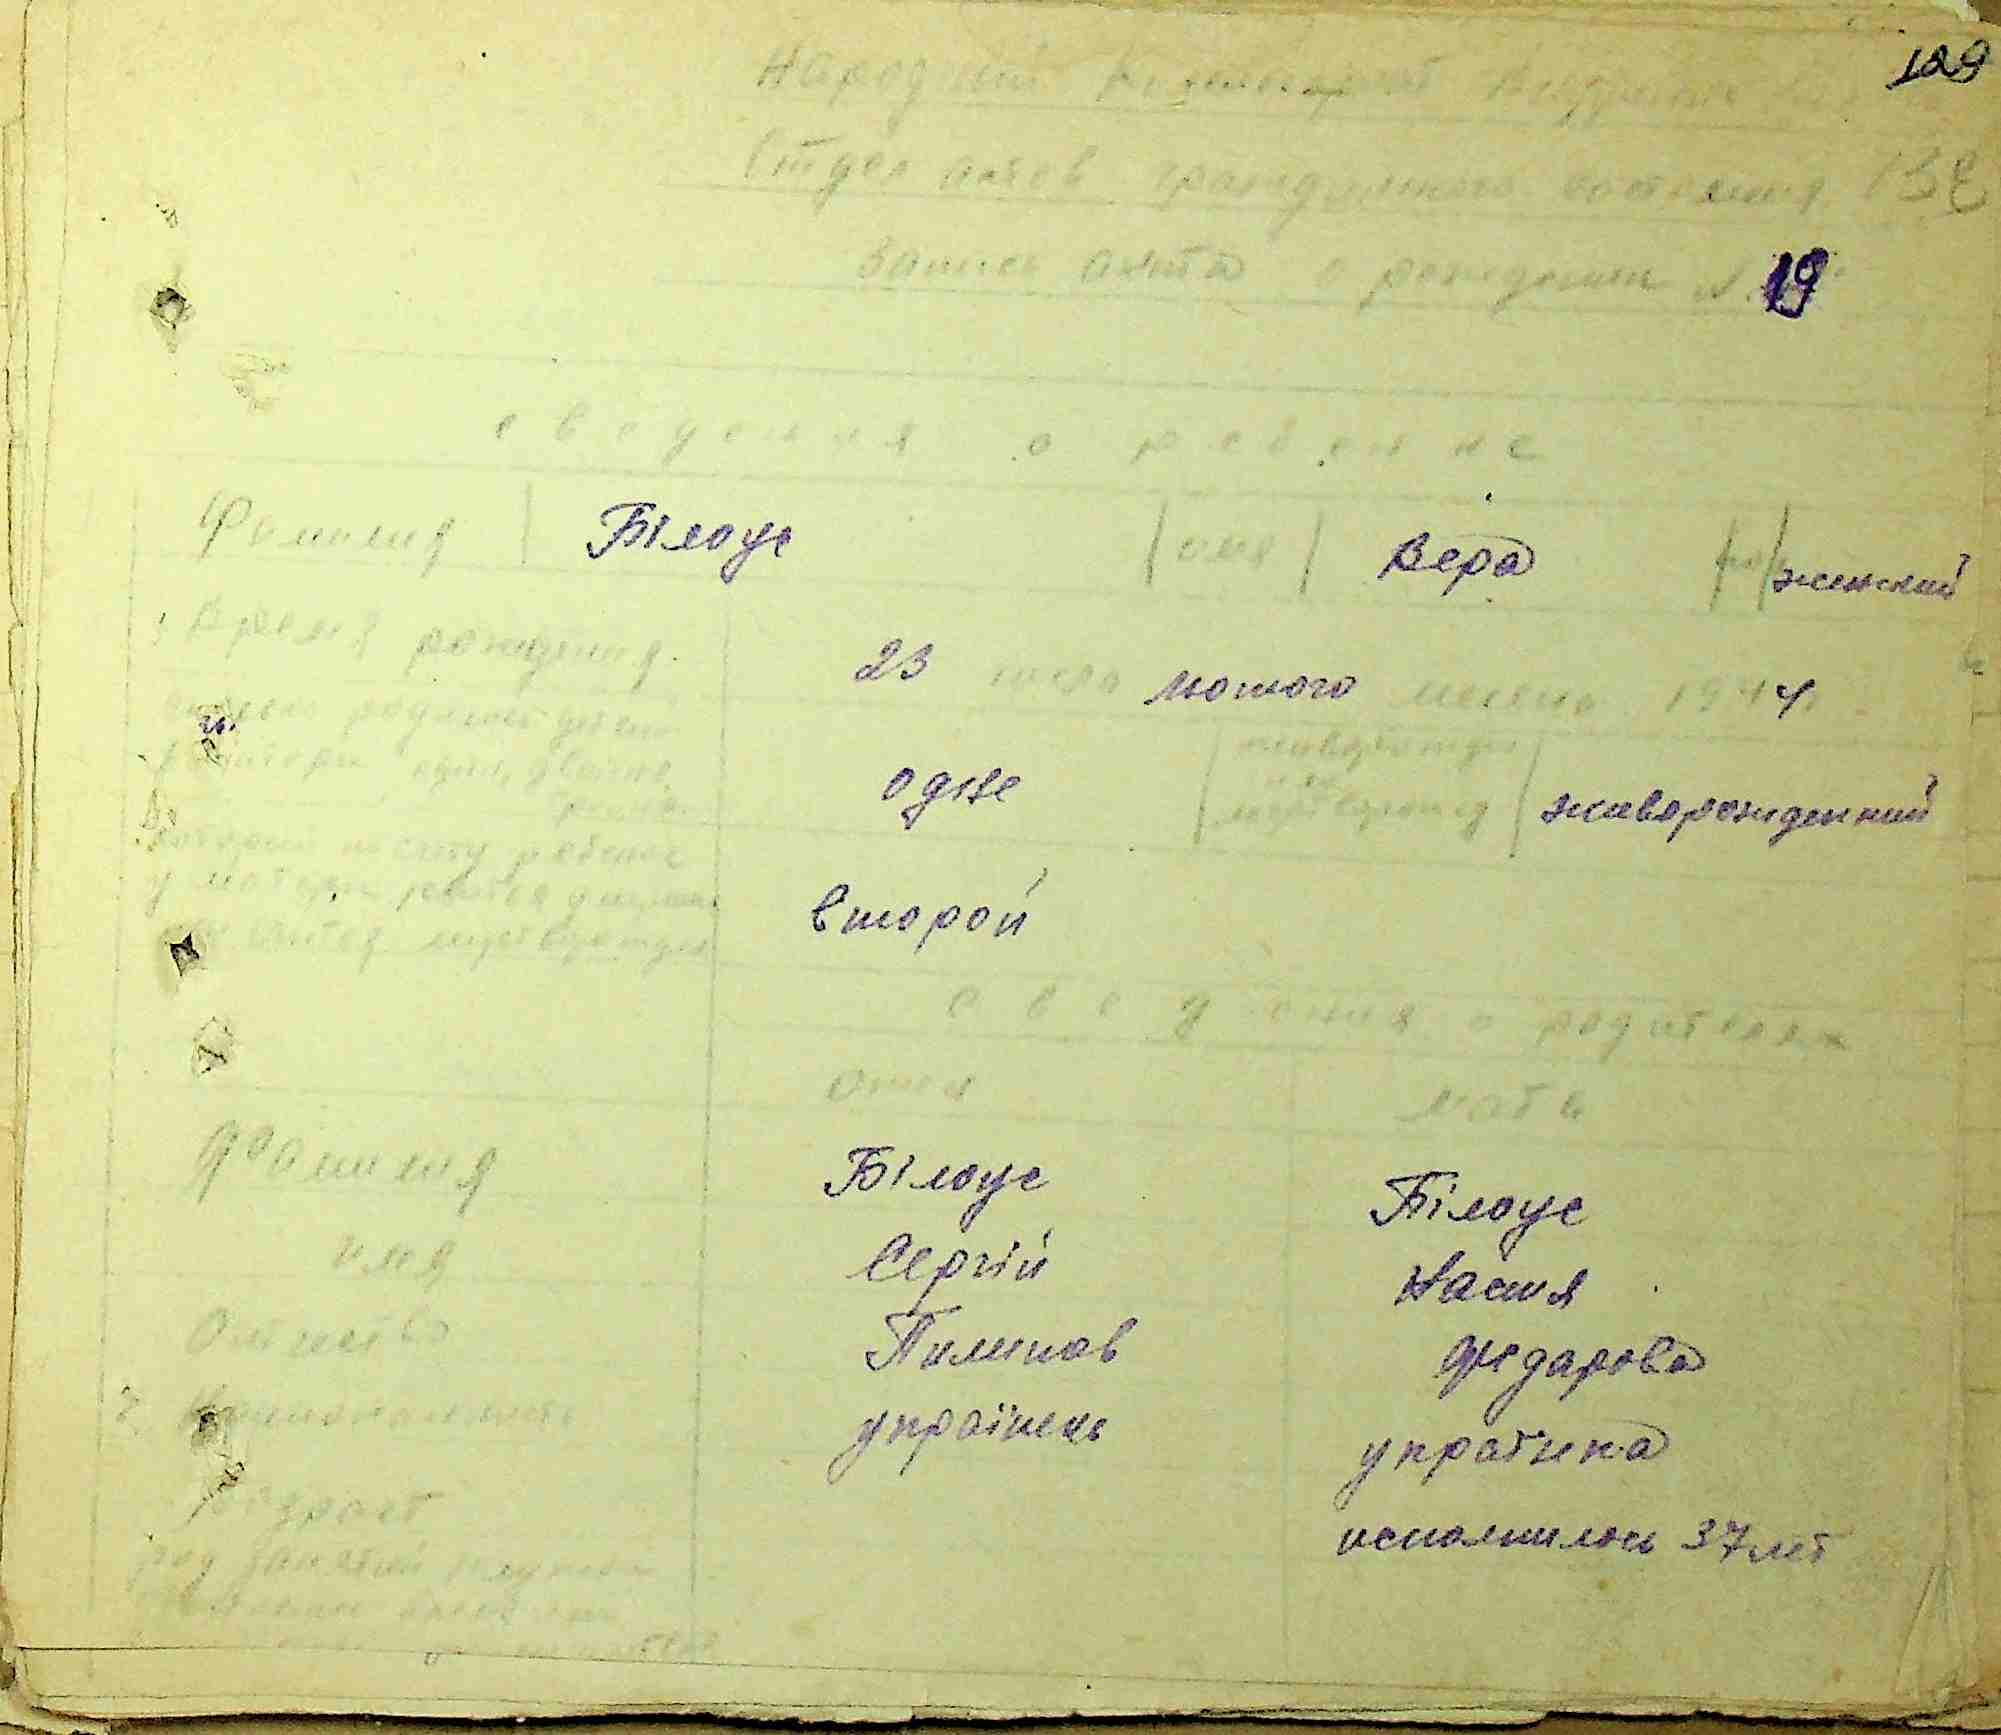 129
Народный Комиссариат Внутренних
Отдел актов гражданского состояния 132
Запись акта о рождении N 19
сведения о ребенке
Фамилия Білоус имя Вера пол женский
1 Время рождения 23 числа лютого месяца 1944
родилось детей
один, двойня, одне живорожденний
который по счету ребенок
у матери второй
сведения о родителях
отец мать
Фамилия Білоус Білоус
имя Сергій Настя
Отчество Пилипов Федарова
2 Национальность українець українка
Возраст исполнилось 37 лет
род занятий